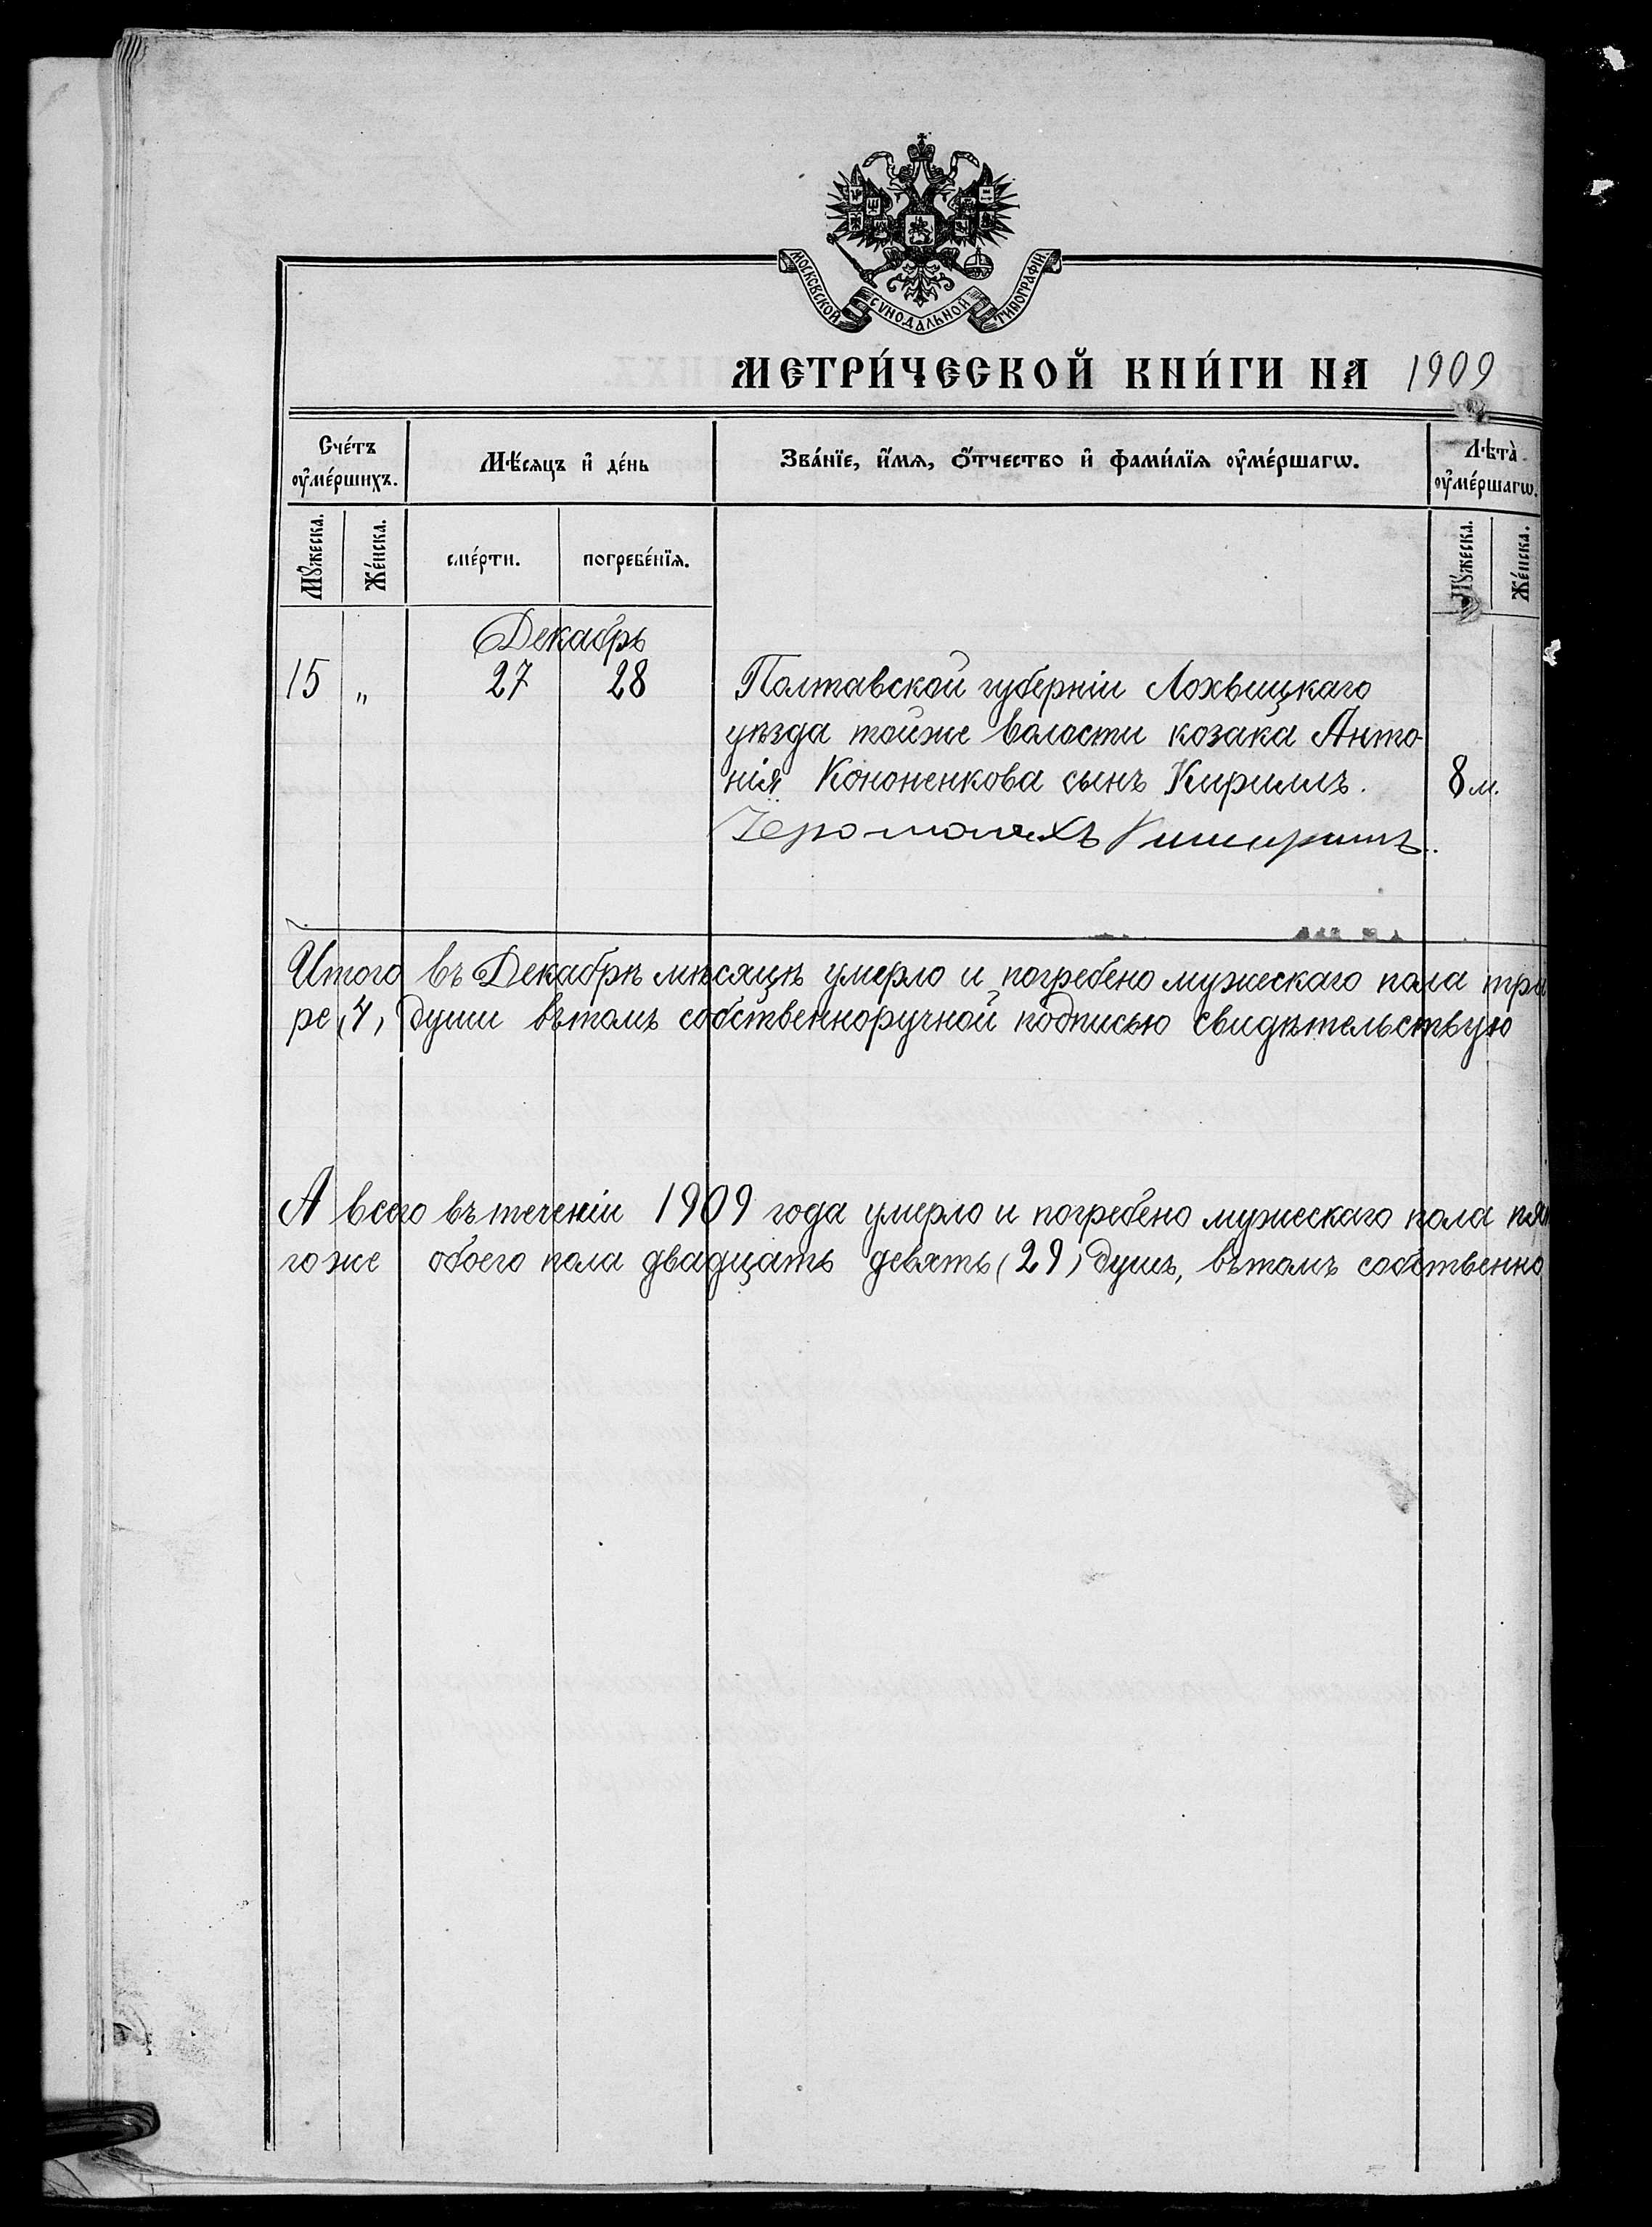 МОСКОВСКОЙ СѴНОДАЛЬНОЙ ТИПОГРАФІИ
МЕТРИ́ЧЕСКОЙ КНИ́ГИ НА 1909
Сче́тъ оумéршихъ.
Мѣ́сяцъ и де́нь
Зва́нїе, и́мя, ѻ҆́тчество и фами́лїя оуме́ршагѡ.
Лѣта̀ оуме́ршагѡ.
Мꙋ́жеска.
Же́нска.
сме́рти.
погребе́нїя.
Мꙋ́жеска.
Же́нска.
Декабрь
15 „ 27 28 Полтавской губерніи Лохвицкаго
уѣзда тойже волости козака Анто-
нія Кононенкова сынъ Кириллъ. 8 м.
Іеромонахъ
Итого въ Декабрѣ мѣсяцѣ умерло и погребено мужескаго пола три
ре (4) души вътомъ собственноручной подписью свидѣтельствую
А всего въ теченіи 1909 года умерло и погребено мужескаго пола пят
го же обоего пола двадцать девять (29) душъ, вътомъ собственно